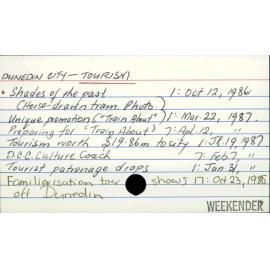 DUNEDIN CITY - TOURISM
• Shades of the past 1: Oct 12, 1986
(Horse-drawn tram. Photo.)
Unique promotion ("Train About") 1: Mar. 22, 1987.
Preparing for "Train About") 7: Apl. 12, "
Tourism worth $19.86m to city 1: Jl. 19, 1987
D.C.C. Culture Coach 7: Feb 7, "
Tourist patronage drops 1: Jan 31, "
Familiarisation tour shows 17: Oct 23, 1985
off Dunedin
WEEKENDER